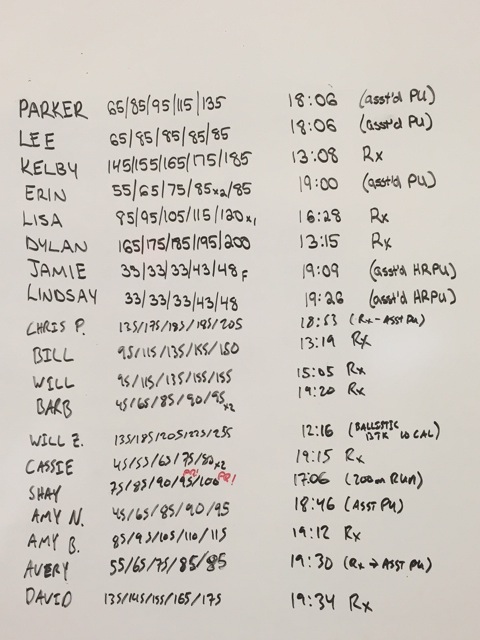 PARKER 65/85/95/115/135 18:06 (asst'd PU)
LEE 65/85/85/85/85 18:06 (asst'd PU)
KELBY 145/155/165/175/185 13:08 Rx
ERIN 55/65/75/85x2/85 19:00 (asst'd PU)
LISA 85/95/105/115/120x1 16:28 Rx
DYLAN 165/175/185/195/200 13:15 Rx
JAMIE 33/33/33/43/48F 19:09 (asst'd HRPU)
LINDSAY 33/33/33/43/48 19:26 (asst'd HRPU)
CHRIS P. 135/175/185/195/205 18:53 (Rx-ASST PU)
BILL 95/115/135/155/150 13:19 Rx
WILL 95/115/135/155/155 15:05 Rx
BARB 45/65/85/90/95x2 19:20 Rx
WILL Z. 135/185/205/225/255 12:16 (BALLISTIC 10 CAL)
CASSIE 45/55/65/75/80x2 19:15 Rx
SHAY 75/85/90/95/100 PR! PR! 17:06 (200m RUN)
AMY N. 45/65/85/90/95 18:46 (ASST PU)
AMY B. 85/95/105/110/115 19:12 Rx
AVERY 55/65/75/85/85 19:30 (Rx → ASST PU)
DAVID 135/145/155/165/175 19:34 Rx